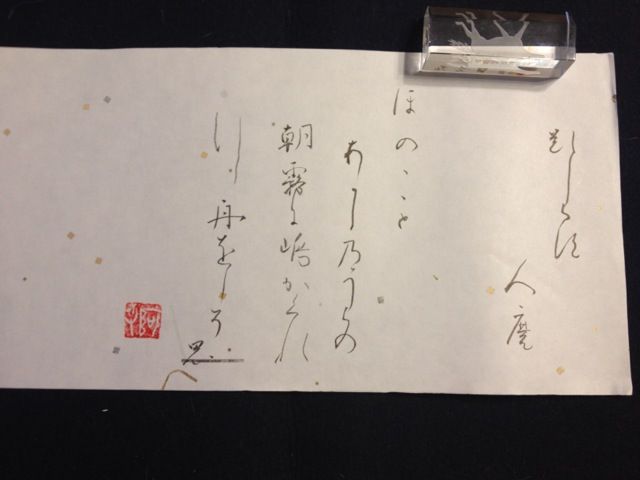 題しらす
人麿
ほのゝゝと
あかし乃うらの
朝霧に嶋かくれ
行く舟をしそ思